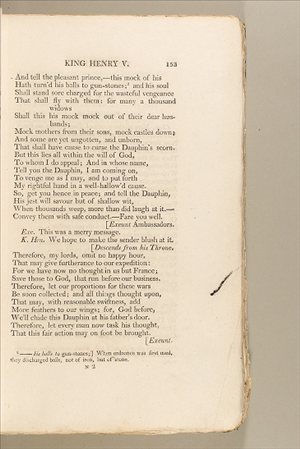 KING HENRY V. 153
And tell the pleasant prince,—this mock of his
Hath turn'd his balls to gun-stones;³ and his soul
Shall stand sore charged for the wasteful vengeance
That shall fly with them: for many a thousand
widows
Shall this his mock mock out of their dear hus-
bands;
Mock mothers from their sons, mock castles down;
And some are yet ungotten, and unborn,
That shall have cause to curse the Dauphin's scorn.
But this lies all within the will of God,
To whom I do appeal; And in whose name,
Tell you the Dauphin, I am coming on,
To venge me as I may, and to put forth
My rightful hand in a well-hallow'd cause.
So, get you hence in peace; and tell the Dauphin,
His jest will savour but of shallow wit,
When thousands weep, more than did laugh at it.—
Convey them with safe conduct.—Fare you well.
[Exeunt Ambassadors.
Exe. This was a merry message.
K. Hen. We hope to make the sender blush at it.
[Descends from his Throne.
Therefore, my lords, omit no happy hour,
That may give furtherance to our expedition:
For we have now no thought in us but France;
Save those to God, that run before our business.
Therefore, let our proportions for these wars
Be soon collected; and all things thought upon,
That may, with reasonable swiftness, add
More feathers to our wings; for, God before,
We'll chide this Dauphin at his father's door.
Therefore, let every man now task his thought,
That this fair action may on foot be brought.
[Exeunt.
³ —— his balls to gun-stones;] When ordnance was first used,
they discharged balls, not of iron, but of stone.
N 2